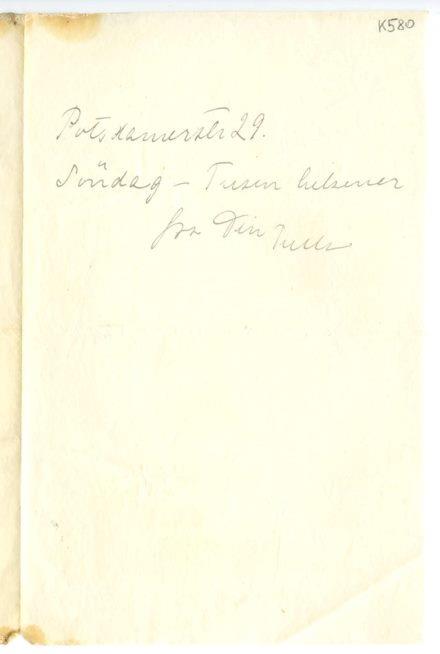 K580
Potsdamerstr 29.
Söndag – Tusen hilsener
fra Din Tulla